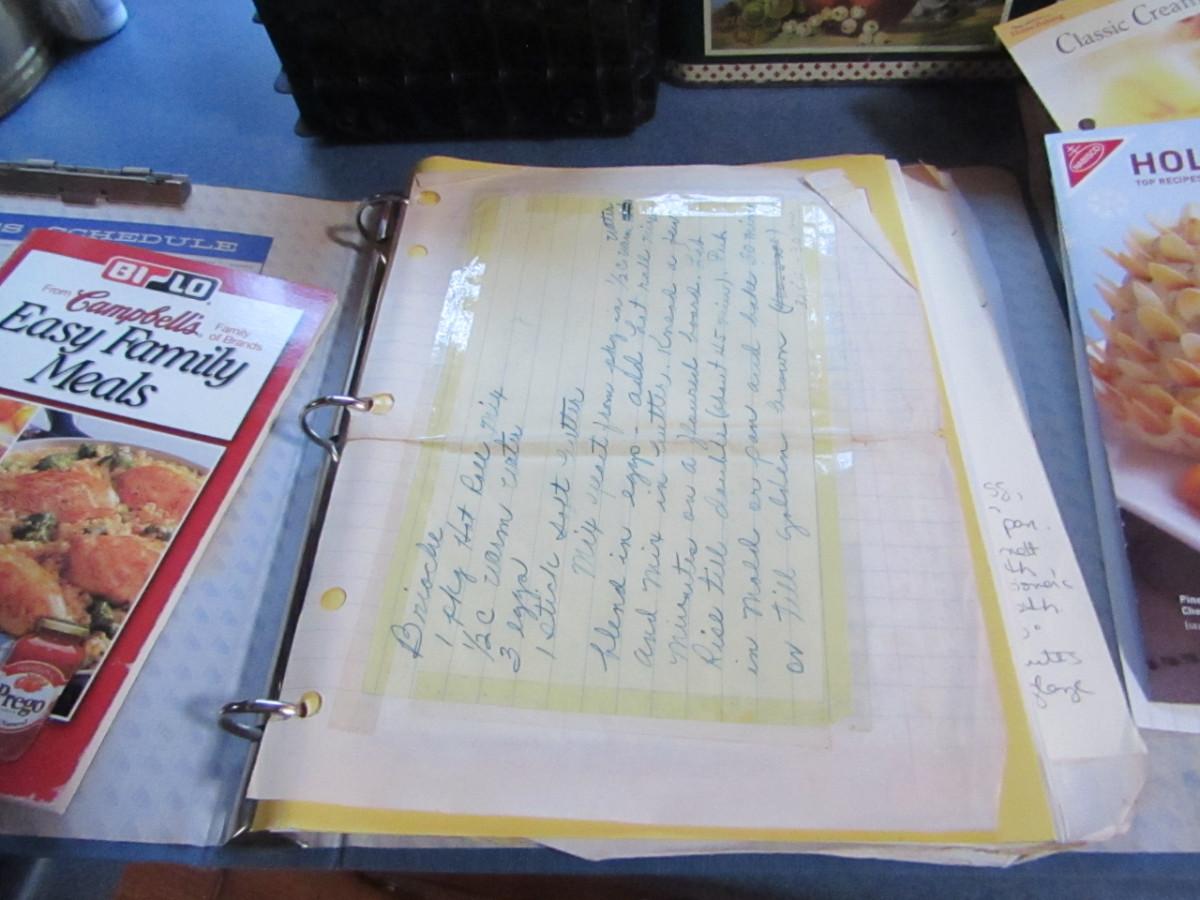 S SCHEDULE
BI-LO
From Campbell's Family of Brands
Easy Family
Meals
Prego
Brioche
1 pkg Hot Roll mix
1/2 C warm water
3 eggs
1 stick soft butter
Mix yeast from pkg in 1/2 C warm water
blend in eggs - add hot roll mix
and mix in butter. Knead a few
minutes on a floured board. Let
Rise till double (about 45 mins). Put
in mold or pan and bake 30 mins
or till golden brown
pan.
melt
Classic Cream
NABISCO
HOL
TOP RECIPES
Pine
Che